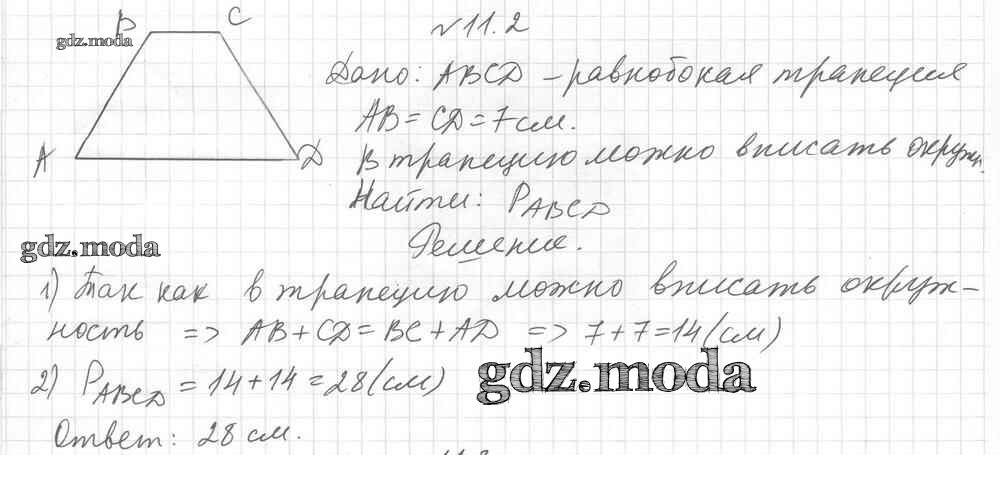 B
C
gdz.moda
№11.2
Дано: ABCD – равнобокая трапеция
AB = CD = 7 см.
A
D
В трапецию можно вписать окружн.
Найти: P ABCD
gdz.moda
Решение.
1) Так как в трапецию можно вписать окруж-
ность => AB + CD = BC + AD => 7 + 7 = 14 (см)
2) P ABCD = 14 + 14 = 28 (см)
gdz.moda
Ответ: 28 см.